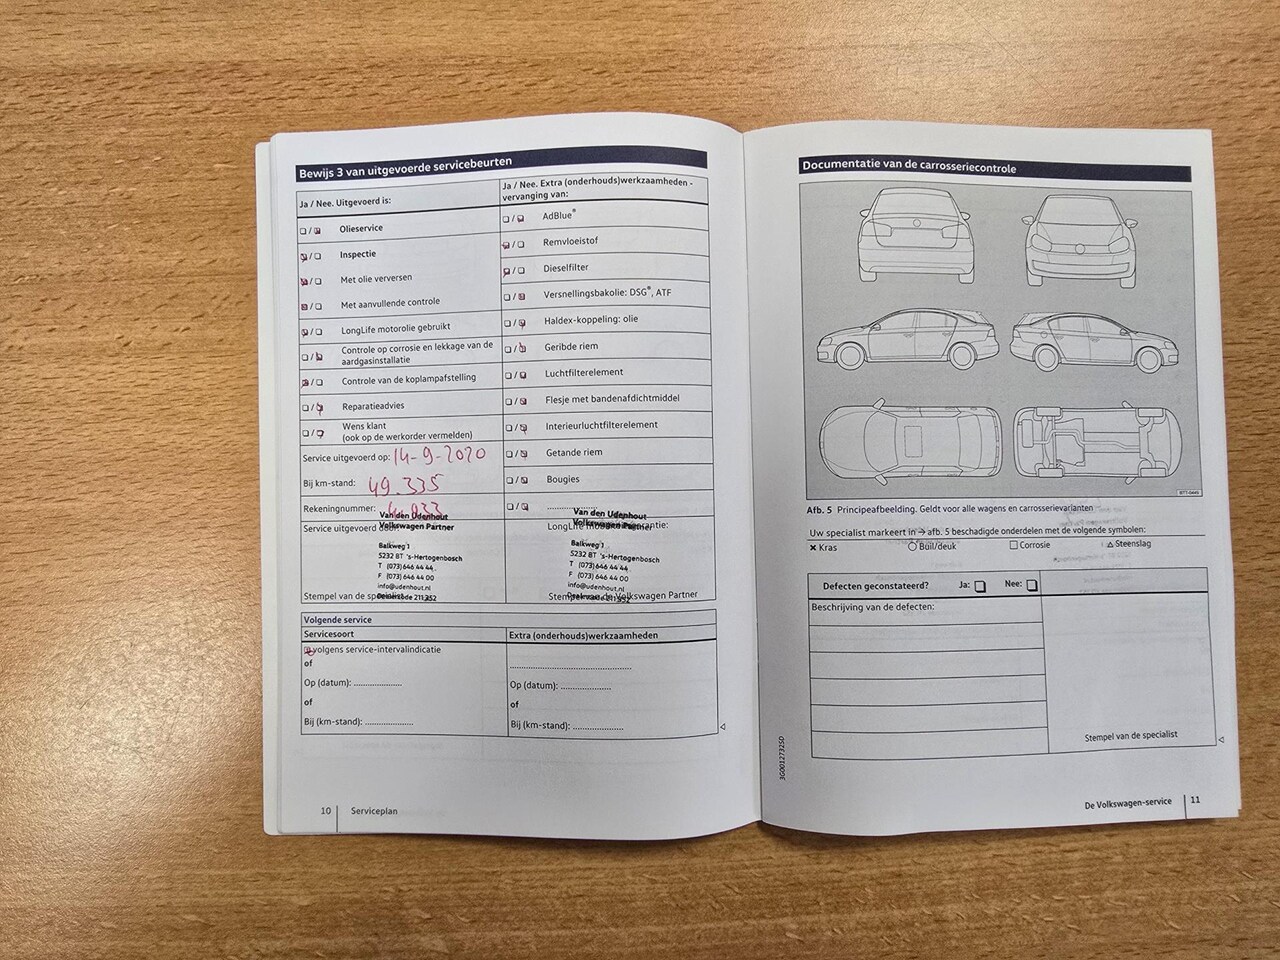 Bewijs 3 van uitgevoerde servicebeurten
Ja / Nee. Uitgevoerd is:
Ja / Nee. Extra (onderhouds)werkzaamheden -
vervanging van:
Olieservice
Inspectie
Met olie verversen
Met aanvullende controle
LongLife motorolie gebruikt
Controle op corrosie en lekkage van de
aardgasinstallatie
Controle van de koplampafstelling
Reparatieadvies
Wens klant
(ook op de werkorder vermelden)
AdBlue®
Remvloeistof
Dieselfilter
Versnellingsbakolie: DSG®, ATF
Haldex-koppeling: olie
Geribde riem
Luchtfilterelement
Flesje met bandenafdichtmiddel
Interieurluchtfilterelement
Getande riem
Bougies
Service uitgevoerd op: 14-9-2020
Bij km-stand: 49.335
Rekeningnummer:
Service uitgevoerd door:
Van den Udenhout
Volkswagen Partner
Balkweg 1
5232 BT 's-Hertogenbosch
T (073) 646 44 44
F (073) 646 44 00
info@udenhout.nl
Stempel van de
Van den Udenhout
Volkswagen Partner
Balkweg 1
5232 BT 's-Hertogenbosch
T (073) 646 44 44
F (073) 646 44 00
info@udenhout.nl
Volkswagen Partner
Volgende service
Servicesoort
Extra (onderhouds)werkzaamheden
volgens service-intervalindicatie
of
Op (datum): ....................
of
Bij (km-stand): ....................
Op (datum): ....................
of
Bij (km-stand): ....................
10 Serviceplan
Documentatie van de carrosseriecontrole
Afb. 5 Principeafbeelding. Geldt voor alle wagens en carrosserievarianten
Uw specialist markeert in → afb. 5 beschadigde onderdelen met de volgende symbolen:
× Kras ○ Buil/deuk □ Corrosie △ Steenslag
Defecten geconstateerd? Ja: □ Nee: □
Beschrijving van de defecten:
Stempel van de specialist
3G0012732SD
De Volkswagen-service 11